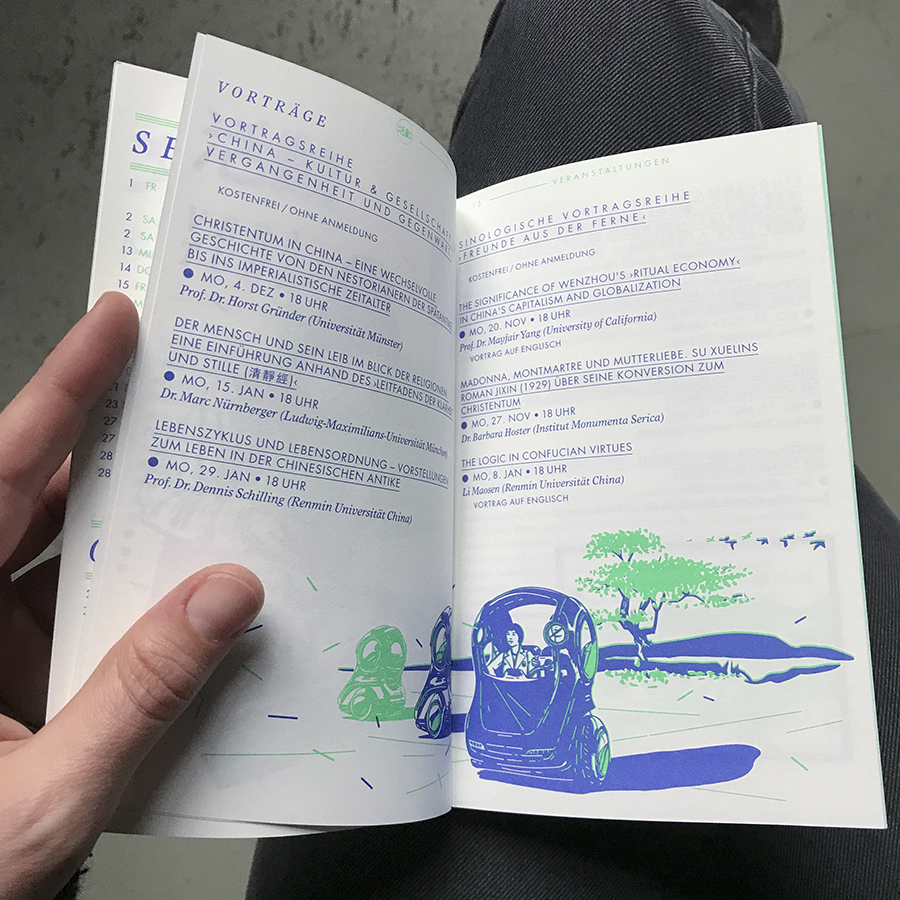 SE
1 FR
2 SA
2 SA
13 MI
14 DO
15 FR
21
23
27
27
28
28
VORTRÄGE
VORTRAGSREIHE
›CHINA – KULTUR & GESELLSCHAFT
VERGANGENHEIT UND GEGENWART
KOSTENFREI / OHNE ANMELDUNG
CHRISTENTUM IN CHINA – EINE WECHSELVOLLE
GESCHICHTE VON DEN NESTORIANERN DER SPÄTANTIKE
BIS INS IMPERIALISTISCHE ZEITALTER
● MO, 4. DEZ • 18 UHR
Prof. Dr. Horst Gründer (Universität Münster)
DER MENSCH UND SEIN LEIB IM BLICK DER RELIGIONEN
EINE EINFÜHRUNG ANHAND DES ›LEITFADENS DER KLARHEIT
UND STILLE (清靜經)‹
● MO, 15. JAN • 18 UHR
Dr. Marc Nürnberger (Ludwig-Maximilians-Universität München)
LEBENSZYKLUS UND LEBENSORDNUNG – VORSTELLUNGEN
ZUM LEBEN IN DER CHINESISCHEN ANTIKE
● MO, 29. JAN • 18 UHR
Prof. Dr. Dennis Schilling (Renmin Universität China)
13 VERANSTALTUNGEN
SINOLOGISCHE VORTRAGSREIHE
›FREUNDE AUS DER FERNE‹
KOSTENFREI / OHNE ANMELDUNG
THE SIGNIFICANCE OF WENZHOU'S ›RITUAL ECONOMY‹
IN CHINA'S CAPITALISM AND GLOBALIZATION
● MO, 20. NOV • 18 UHR
Prof. Dr. Mayfair Yang (University of California)
VORTRAG AUF ENGLISCH
MADONNA, MONTMARTRE UND MUTTERLIEBE. SU XUELINS
ROMAN JIXIN (1929) ÜBER SEINE KONVERSION ZUM
CHRISTENTUM
● MO, 27. NOV • 18 UHR
Dr. Barbara Hoster (Institut Monumenta Serica)
THE LOGIC IN CONFUCIAN VIRTUES
● MO, 8. JAN • 18 UHR
Li Maosen (Renmin Universität China)
VORTRAG AUF ENGLISCH